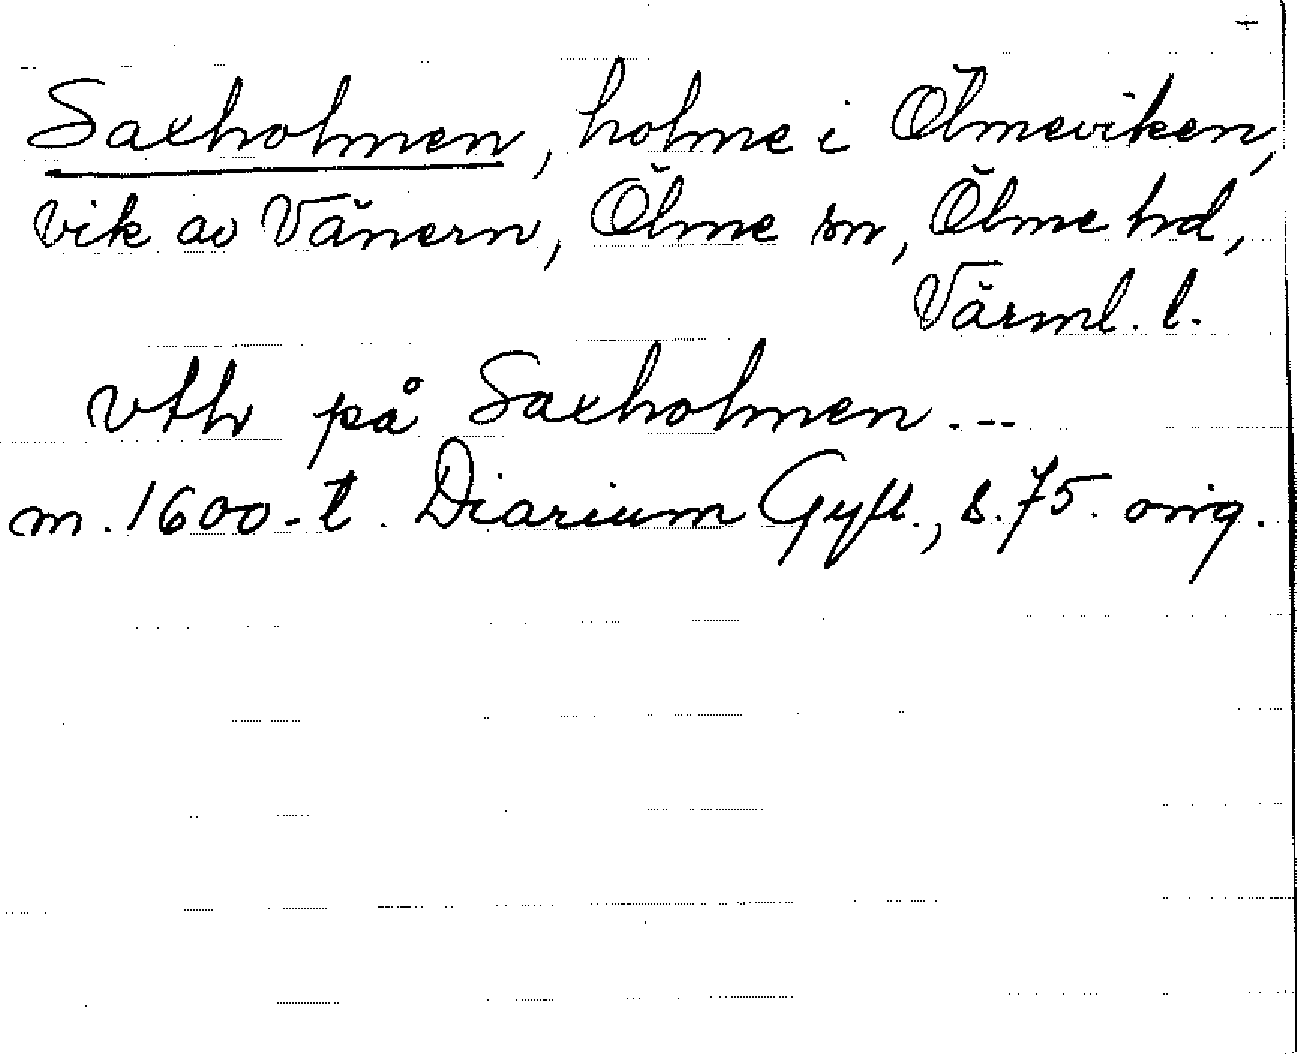 Saxholmen, holme i Ölmeviken,
vik av Vänern, Ölme sn, Ölme hd,
Värml. l.
vth på Saxholmen ---
m. 1600-t. Diarium Gyll., s. 75. orig.